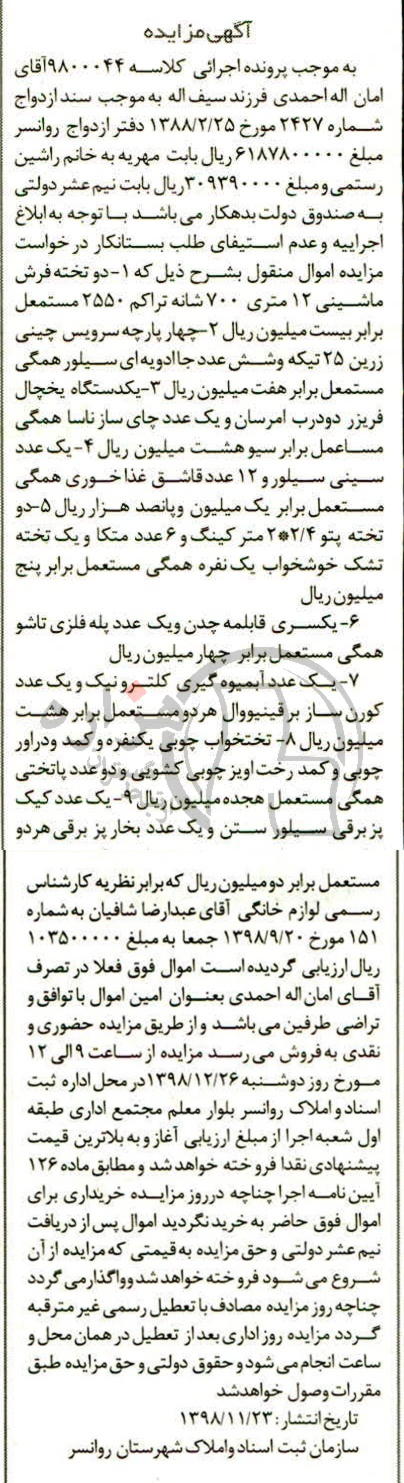 آگهی مزایده
به موجب پرونده اجرائی کلاسه ۹۸۰۰۰۴۴آقای
امان اله احمدی فرزند سیف اله به موجب سند ازدواج
شماره ۲۴۲۷ مورخ ۱۳۸۸/۲/۲۵ دفتر ازدواج روانسر
مبلغ ۶۱۸۷۸۰۰۰۰۰ ریال بابت مهریه به خانم راشین
رستمی و مبلغ ۳۰۹۳۹۰۰۰۰ریال بابت نیم عشر دولتی
به صندوق دولت بدهکار می باشد با توجه به ابلاغ
اجراییه و عدم استیفای طلب بستانکار درخواست
مزایده اموال منقول بشرح ذیل که ۱-دو تخته فرش
ماشینی ۱۲ متری ۷۰۰ شانه تراکم ۲۵۵۰ مستمعل
برابر بیست میلیون ریال ۲-چهار پارچه سرویس چینی
زرین ۲۵ تیکه وشش عدد جا ادویه ای سیلور همگی
مستمعل برابر هفت میلیون ریال ۳-یکدستگاه یخچال
فریزر دودرب امرسان و یک عدد چای ساز ناسا همگی
مساعمل برابر سیو هشت میلیون ریال ۴-یک عدد
سینی سیلور و ۱۲ عدد قاشق غذاخوری همگی
مستعمل برابر یک میلیون و پانصد هزار ریال ۵-دو
تخته پتو ۲/۴*۲ متر کینگ و ۶ عدد متکا و یک تخته
تشک خوشخواب یک نفره همگی مستعمل برابر پنج
میلیون ریال
۶- یکسری قابلمه چدن ویک عدد پله فلزی تاشو
همگی مستعمل برابر چهار میلیون ریال
۷- یک عدد آبمیوه گیری کلترونیک و یک عدد
کورن ساز برقینیووال هردو مستعمل برابر هشت
میلیون ریال ۸- تختخواب چوبی یکنفره و کمد ودراور
چوبی و کمد رخت اویز چوبی کشویی و دو عدد پاتختی
همگی مستعمل هجده میلیون ریال ۹-یک عدد کیک
پز برقی سیلور ستن و یک عدد بخار پز برقی هردو
مستعمل برابر دو میلیون ریال که برابر نظریه کارشناس
رسمی لوازم خانگی آقای عبدارضا شافیان به شماره
۱۵۱ مورخ ۱۳۹۸/۹/۲۰ جمعا به مبلغ ۱۰۳۵۰۰۰۰۰
ریال ارزیابی گردیده است اموال فوق فعلا در تصرف
آقای امان اله احمدی بعنوان امین اموال با توافق و
تراضی طرفین می باشد و از طریق مزایده حضوری و
نقدی به فروش می رسد مزایده از ساعت ۹ الی ۱۲
مورخ روز دوشنبه ۱۳۹۸/۱۲/۲۶در محل اداره ثبت
اسناد و املاک روانسر بلوار معلم مجتمع اداری طبقه
اول شعبه اجرا از مبلغ ارزیابی آغاز و به بلاترین قیمت
پیشنهادی نقدا فروخته خواهد شد و مطابق ماده ۱۲۶
آیین نامه اجرا چناچه درروز مزایده خریداری برای
اموال فوق حاضر به خرید نگردید اموال پس از دریافت
نیم عشر دولتی و حق مزایده به قیمتی که مزایده از آن
شروع می شود فروخته خواهد شد وواگذار می گردد
چناچه روز مزایده مصادف با تعطیل رسمی غیر مترقبه
گردد مزایده روز اداری بعد از تعطیل در همان محل و
ساعت انجام می شود و حقوق دولتی و حق مزایده طبق
مقررات وصول خواهدشد
تاریخ انتشار: ۱۳۹۸/۱۱/۲۳
سازمان ثبت اسناد واملاک شهرستان روانسر